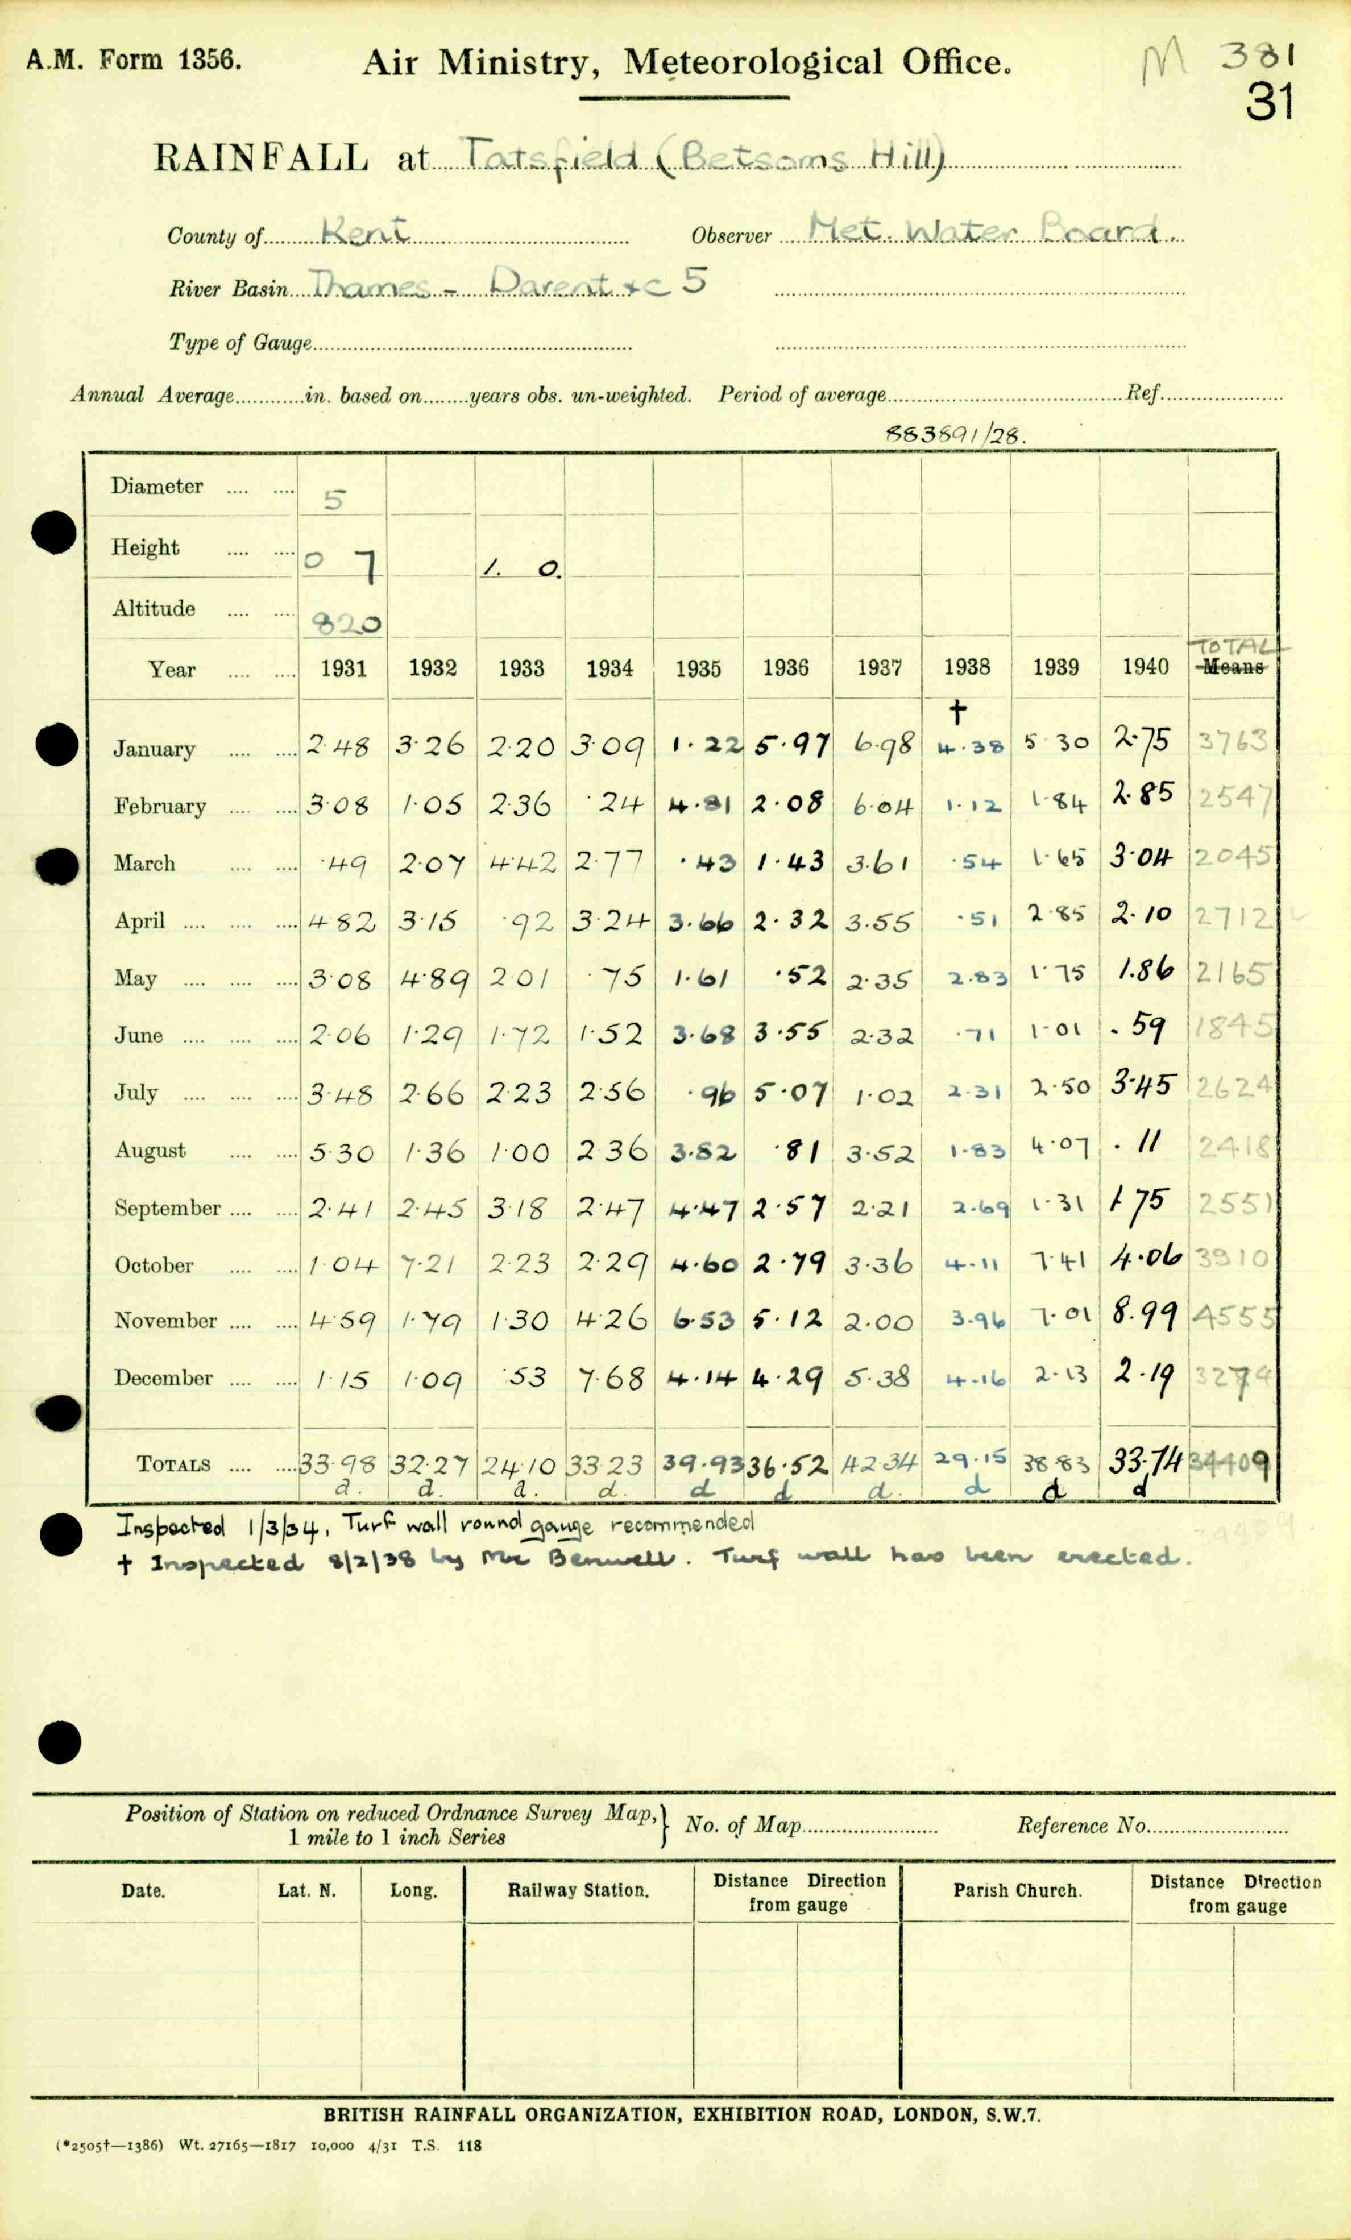 A.M. Form 1356.
Air Ministry, Meteorological Office.
M 381
31
RAINFALL at Tatsfield (Betsoms Hill)
County of Kent Observer Met. Water Board.
River Basin Thames - Darent &c 5
Type of Gauge
Annual Average in. based on years obs. un-weighted. Period of average Ref.
883891/28.
Diameter 5
Height 0 7 1. 0.
Altitude 820
TOTAL
Year 1931 1932 1933 1934 1935 1936 1937 1938 1939 1940 Means
†
January 2.48 3.26 2.20 3.09 1.22 5.97 6.98 4.38 5.30 2.75 3763
February 3.08 1.05 2.36 .24 4.81 2.08 6.04 1.12 1.84 2.85 2547
March .49 2.07 4.42 2.77 .43 1.43 3.61 .54 1.65 3.04 2045
April 4.82 3.15 .92 3.24 3.66 2.32 3.55 .51 2.85 2.10 2712
May 3.08 4.89 2.01 .75 1.61 .52 2.35 2.83 1.75 1.86 2165
June 2.06 1.29 1.72 1.52 3.68 3.55 2.32 .71 1.01 .59 1845
July 3.48 2.66 2.23 2.56 .96 5.07 1.02 2.31 2.50 3.45 2624
August 5.30 1.36 1.00 2.36 3.82 .81 3.52 1.83 4.07 .11 2418
September 2.41 2.45 3.18 2.47 4.47 2.57 2.21 2.69 1.31 1.75 2551
October 1.04 7.21 2.23 2.29 4.60 2.79 3.36 4.11 7.41 4.06 3910
November 4.59 1.79 1.30 4.26 6.53 5.12 2.00 3.96 7.01 8.99 4555
December 1.15 1.09 .53 7.68 4.14 4.29 5.38 4.16 2.13 2.19 3274
TOTALS 33.98 32.27 24.10 33.23 39.93 36.52 42.34 29.15 38.83 33.74 34409
d. d. d. d. d d d. d d d
Inspected 1/3/34, Turf wall round gauge recommended
34409
† Inspected 8/2/38 by Mr Benwell. Turf wall has been erected.
Position of Station on reduced Ordnance Survey Map, } No. of Map Reference No.
1 mile to 1 inch Series
Date. Lat. N. Long. Railway Station. Distance Direction from gauge Parish Church. Distance Direction from gauge
BRITISH RAINFALL ORGANIZATION, EXHIBITION ROAD, LONDON, S.W.7.
(*2505†—1386) Wt. 27165—1817 10,000 4/31 T.S. 118